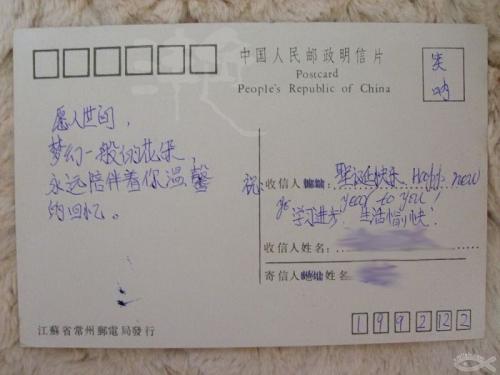 中国人民邮政明信片
Postcard
People's Republic of China
笑
呐
愿人世间,
梦幻一般的花朵,
永远陪伴着你温馨
的回忆。
祝:
收信人地址: 圣诞快乐、Happy new
year to you!
学习进步! 生活愉快!
收信人姓名:
寄信人地址姓名:
江蘇省常州郵電局發行
1992122